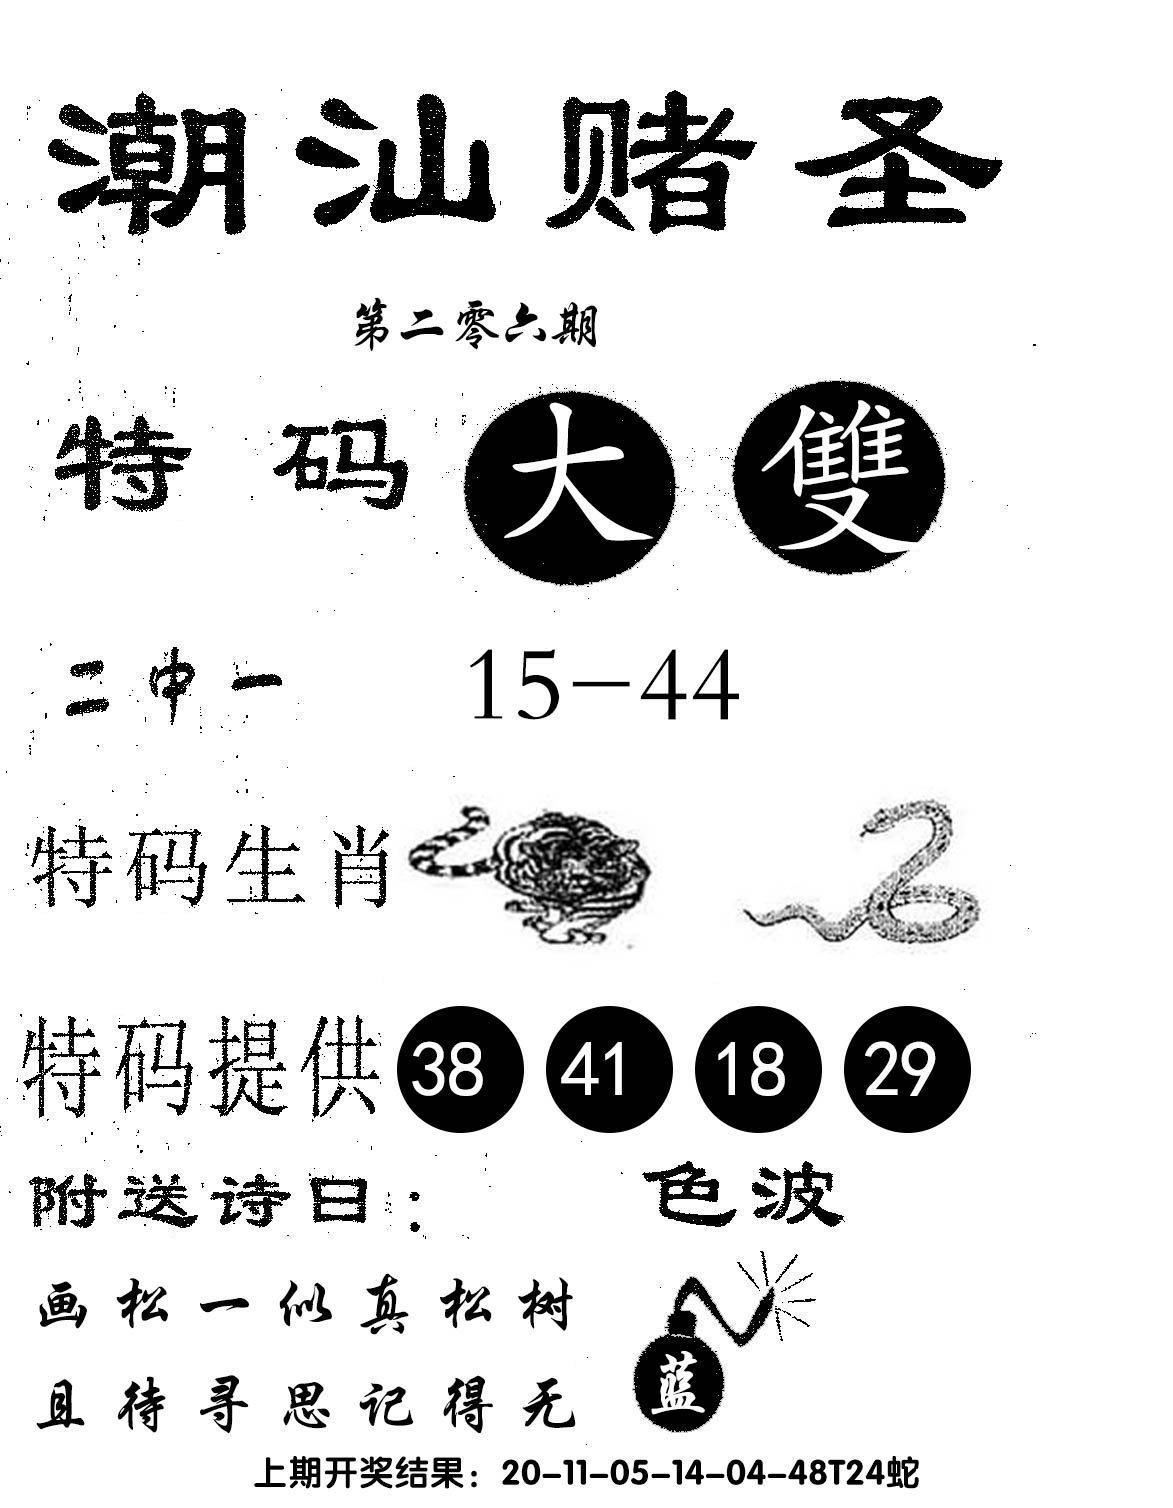 潮汕赌圣
第二零六期
特码 大 雙
二中一 15-44
特码生肖
特码提供 38 41 18 29
附送诗曰： 色波
画松一似真松树
且待寻思记得无
蓝
上期开奖结果：20-11-05-14-04-48T24蛇